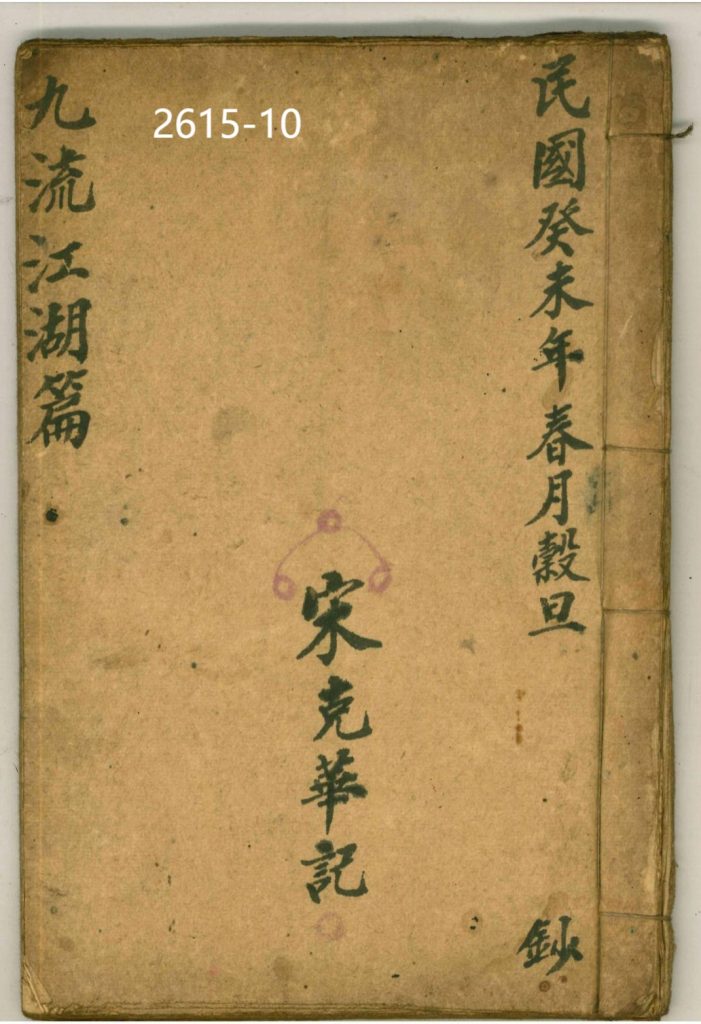 民國癸未年春月糓旦
鈔
宋克華記
九流江湖篇
2615-10